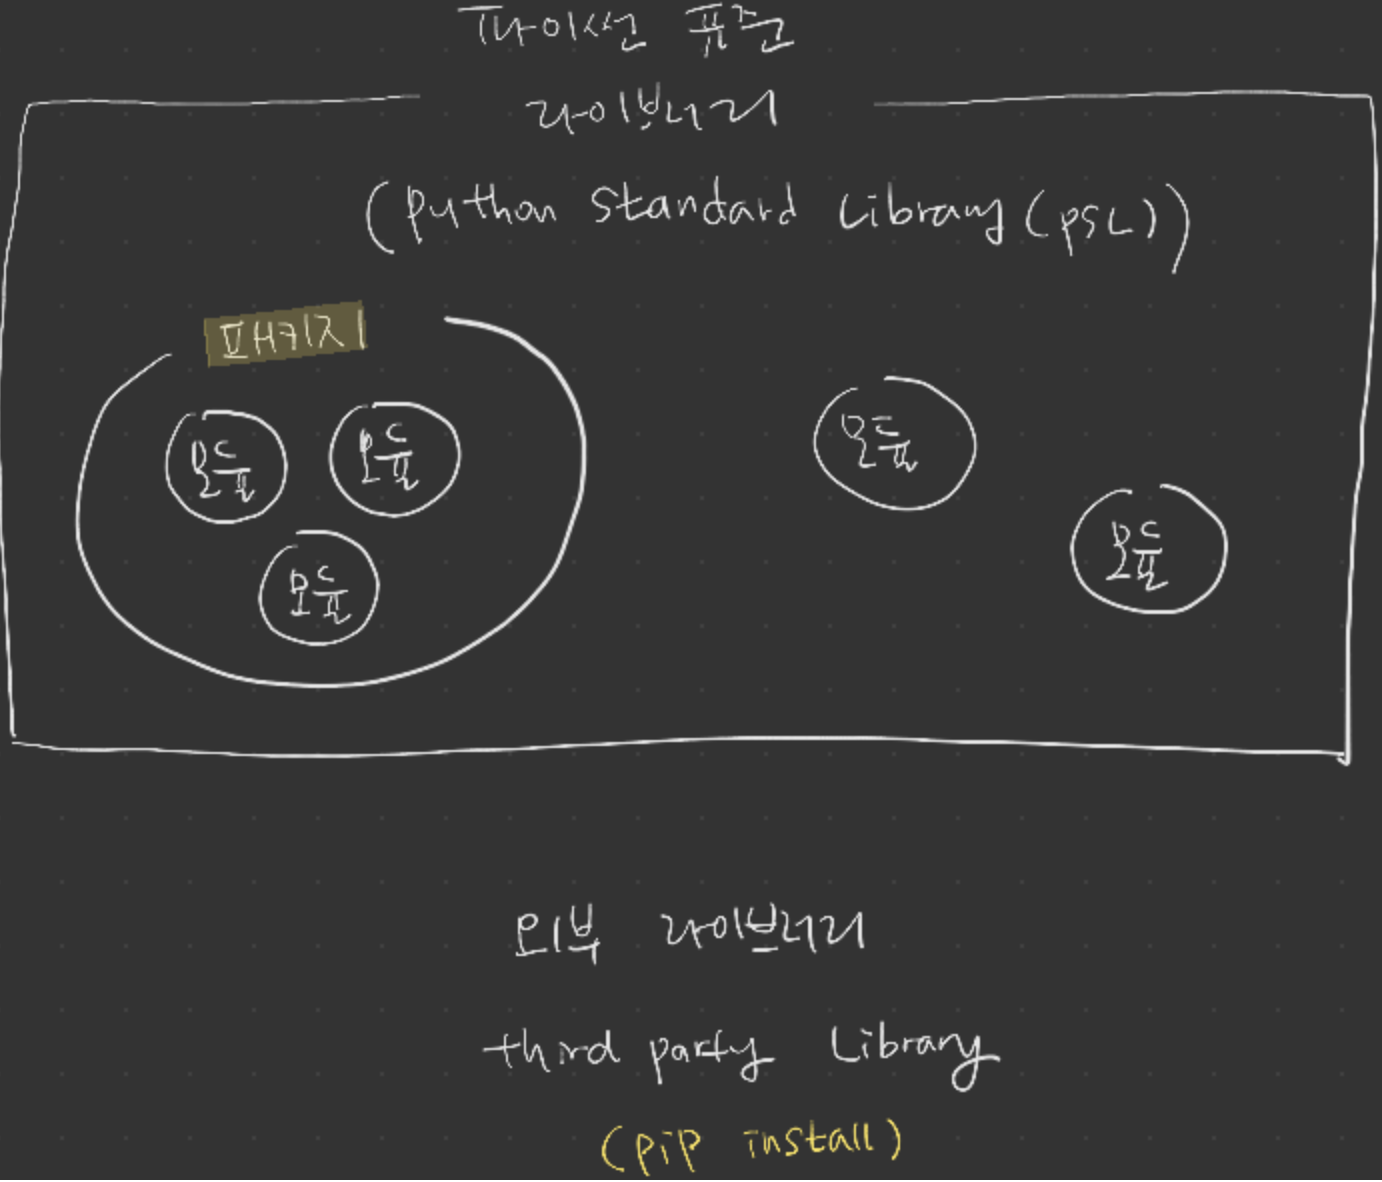 파이썬 표준
라이브러리
(Python Standard Library (PSL))
패키지
모듈
모듈
모듈
모듈
모듈
외부 라이브러리
third party Library
(pip install)